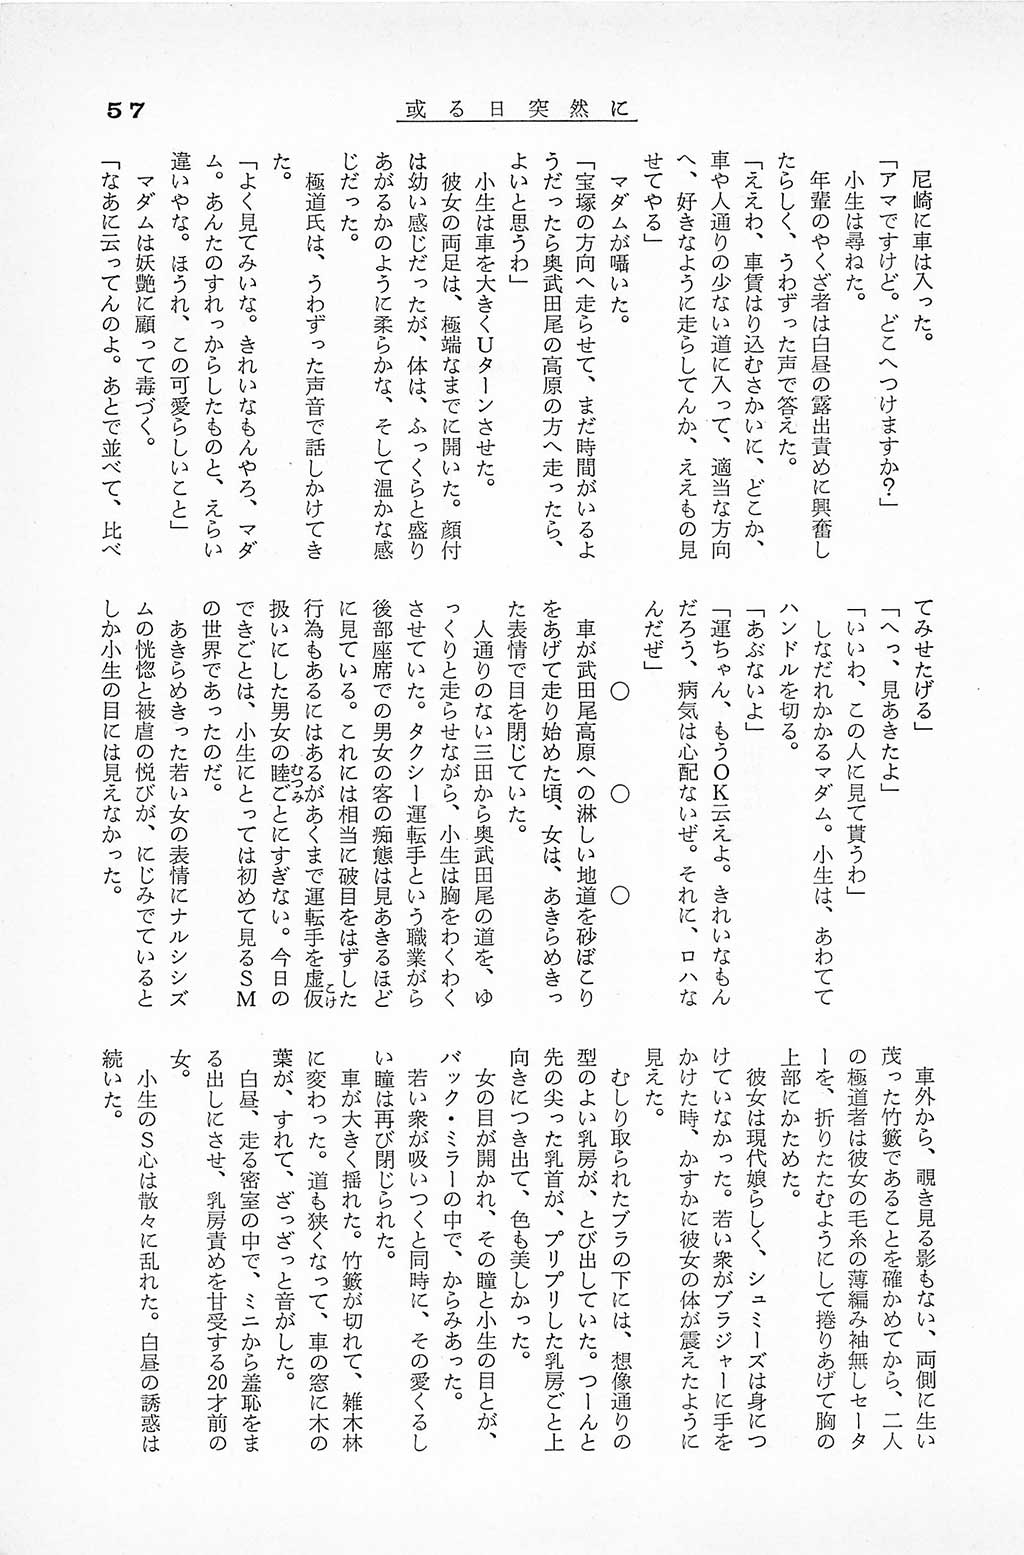 57
或る日突然に
尼崎に車は入った。
「アマですけど。どこへつけますか？」
小生は尋ねた。
年輩のやくざ者は白昼の露出責めに興奮し
たらしく、うわずった声で答えた。
「ええわ、車賃はり込むさかいに、どこか、
車や人通りの少ない道に入って、適当な方向
へ、好きなように走らしてんか、ええもの見
せてやる」
マダムが囁いた。
「宝塚の方向へ走らせて、まだ時間がいるよ
うだったら奥武田尾の高原の方へ走ったら、
よいと思うわ」
小生は車を大きくUターンさせた。
彼女の両足は、極端なまでに開いた。顔付
は幼い感じだったが、体は、ふっくらと盛り
あがるかのように柔らかな、そして温かな感
じだった。
極道氏は、うわずった声音で話しかけてき
た。
「よく見てみいな。きれいなもんやろ、マダ
ム。あんたのすれっからしたものと、えらい
違いやな。ほうれ、この可愛らしいこと」
マダムは妖艶に顧って毒づく。
「なあに云ってんのよ。あとで並べて、比べ
てみせたげる」
「へっ、見あきたよ」
「いいわ、この人に見て貰うわ」
しなだれかかるマダム。小生は、あわてて
ハンドルを切る。
「あぶないよ」
「運ちゃん、もうOK云えよ。きれいなもん
だろう、病気は心配ないぜ。それに、ロハな
んだぜ」
○　○　○
車が武田尾高原への淋しい地道を砂ぼこり
をあげて走り始めた頃、女は、あきらめきっ
た表情で目を閉じていた。
人通りのない三田から奥武田尾の道を、ゆ
っくりと走らせながら、小生は胸をわくわく
させていた。タクシー運転手という職業がら
後部座席での男女の客の痴態は見あきるほど
に見ている。これには相当に破目をはずした
行為もあるにはあるがあくまで運転手を虚仮（こけ）
扱いにした男女の睦（むつみ）ごとにすぎない。今日の
できごとは、小生にとっては初めて見るSM
の世界であったのだ。
あきらめきった若い女の表情にナルシシズ
ムの恍惚と被虐の悦びが、にじみでていると
しか小生の目には見えなかった。
車外から、覗き見る影もない、両側に生い
茂った竹籔であることを確かめてから、二人
の極道者は彼女の毛糸の薄編み袖無しセータ
ーを、折りたたむようにして捲りあげて胸の
上部にかためた。
彼女は現代娘らしく、シュミーズは身につ
けていなかった。若い衆がブラジャーに手を
かけた時、かすかに彼女の体が震えたように
見えた。
むしり取られたブラの下には、想像通りの
型のよい乳房が、とび出していた。つーんと
先の尖った乳首が、プリプリした乳房ごと上
向きにつき出て、色も美しかった。
女の目が開かれ、その瞳と小生の目とが、
バック・ミラーの中で、からみあった。
若い衆が吸いつくと同時に、その愛くるし
い瞳は再び閉じられた。
車が大きく揺れた。竹籔が切れて、雑木林
に変わった。道も狭くなって、車の窓に木の
葉が、すれて、ざっざっと音がした。
白昼、走る密室の中で、ミニから羞恥をま
る出しにさせ、乳房責めを甘受する20才前の
女。
小生のS心は散々に乱れた。白昼の誘惑は
続いた。